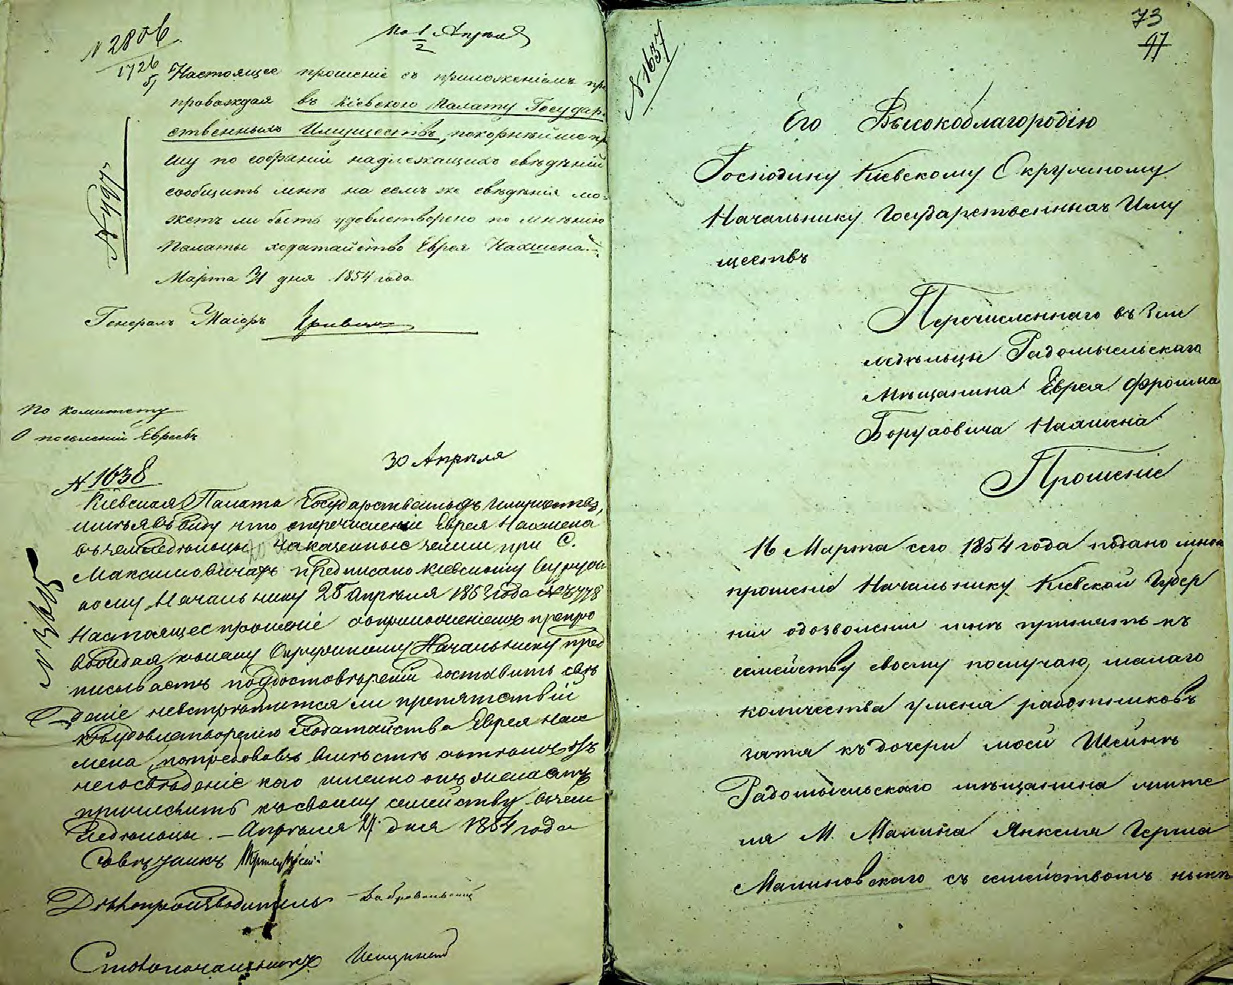 N 2806
1726
По 1/2 Апрѣля
Настоящее прошеніе съ приложеніемъ пре
провождая въ Кіевскую Палату Государ-
ственныхъ Имуществъ, покорнѣйше пр
шу по собраніи надлежащихъ свѣдѣній
сообщить мнѣ на семъ же свѣдѣнія мо-
жетъ ли быть удовлетворено по мнѣнію
Палаты ходатайство Еврея Нахмена.
Марта 31 дня 1854 года
Генералъ Маіоръ
По комитету
О поселеніи Евреевъ
30 Апрѣля
N 1638
Кіевская Палата Государственныхъ Имуществъ,
имѣя въ виду что о перечисленіи Еврея Нахмена
въ земледѣльцы на казенные земли при С.
Максимовичахъ предписано Кіевскому Окруж
ному Начальнику 25 Апрѣля 1853 года
Настоящее прошеніе съ приложеніемъ препро
вождая къ оному Окружному Начальнику пред
писываетъ по достовѣреніи доставить свѣ
деніе невстрѣтится ли препятствій
къ удовлетворенію Ходатайства Еврея Нах
мена, потребовавъ вмѣстѣ съ тѣмъ отъ
него свѣденіе кого именно онъ желаетъ
причислить къ своему семейству въ зем
ледѣльцы. – Апрѣля 21 дня 1854 года
Совѣтникъ
Дѣлопроизводитель
Столоначальникъ
73
97
N 1637
Его Высокоблагородію
Господину Кіевскому Окружному
Начальнику Государственныхъ Иму
ществъ
Перечисленнаго въ Зем
ледѣльцы Радомысльскаго
Мѣщанина Еврея Фроима
Боруховича Нахмена
Прошеніе
16 Марта сего 1854 года подано мною
прошеніе Начальнику Кіевской Губер
ніи одозволеніи мнѣ принять къ
семейству своему послучаю малаго
количества уменя работниковъ
зятя къ дочери моей Шейнѣ
Радомысльскаго мѣщанина жите
ля М. Малина Янкеля Герша
Малиновскаго съ семействомъ нынѣ